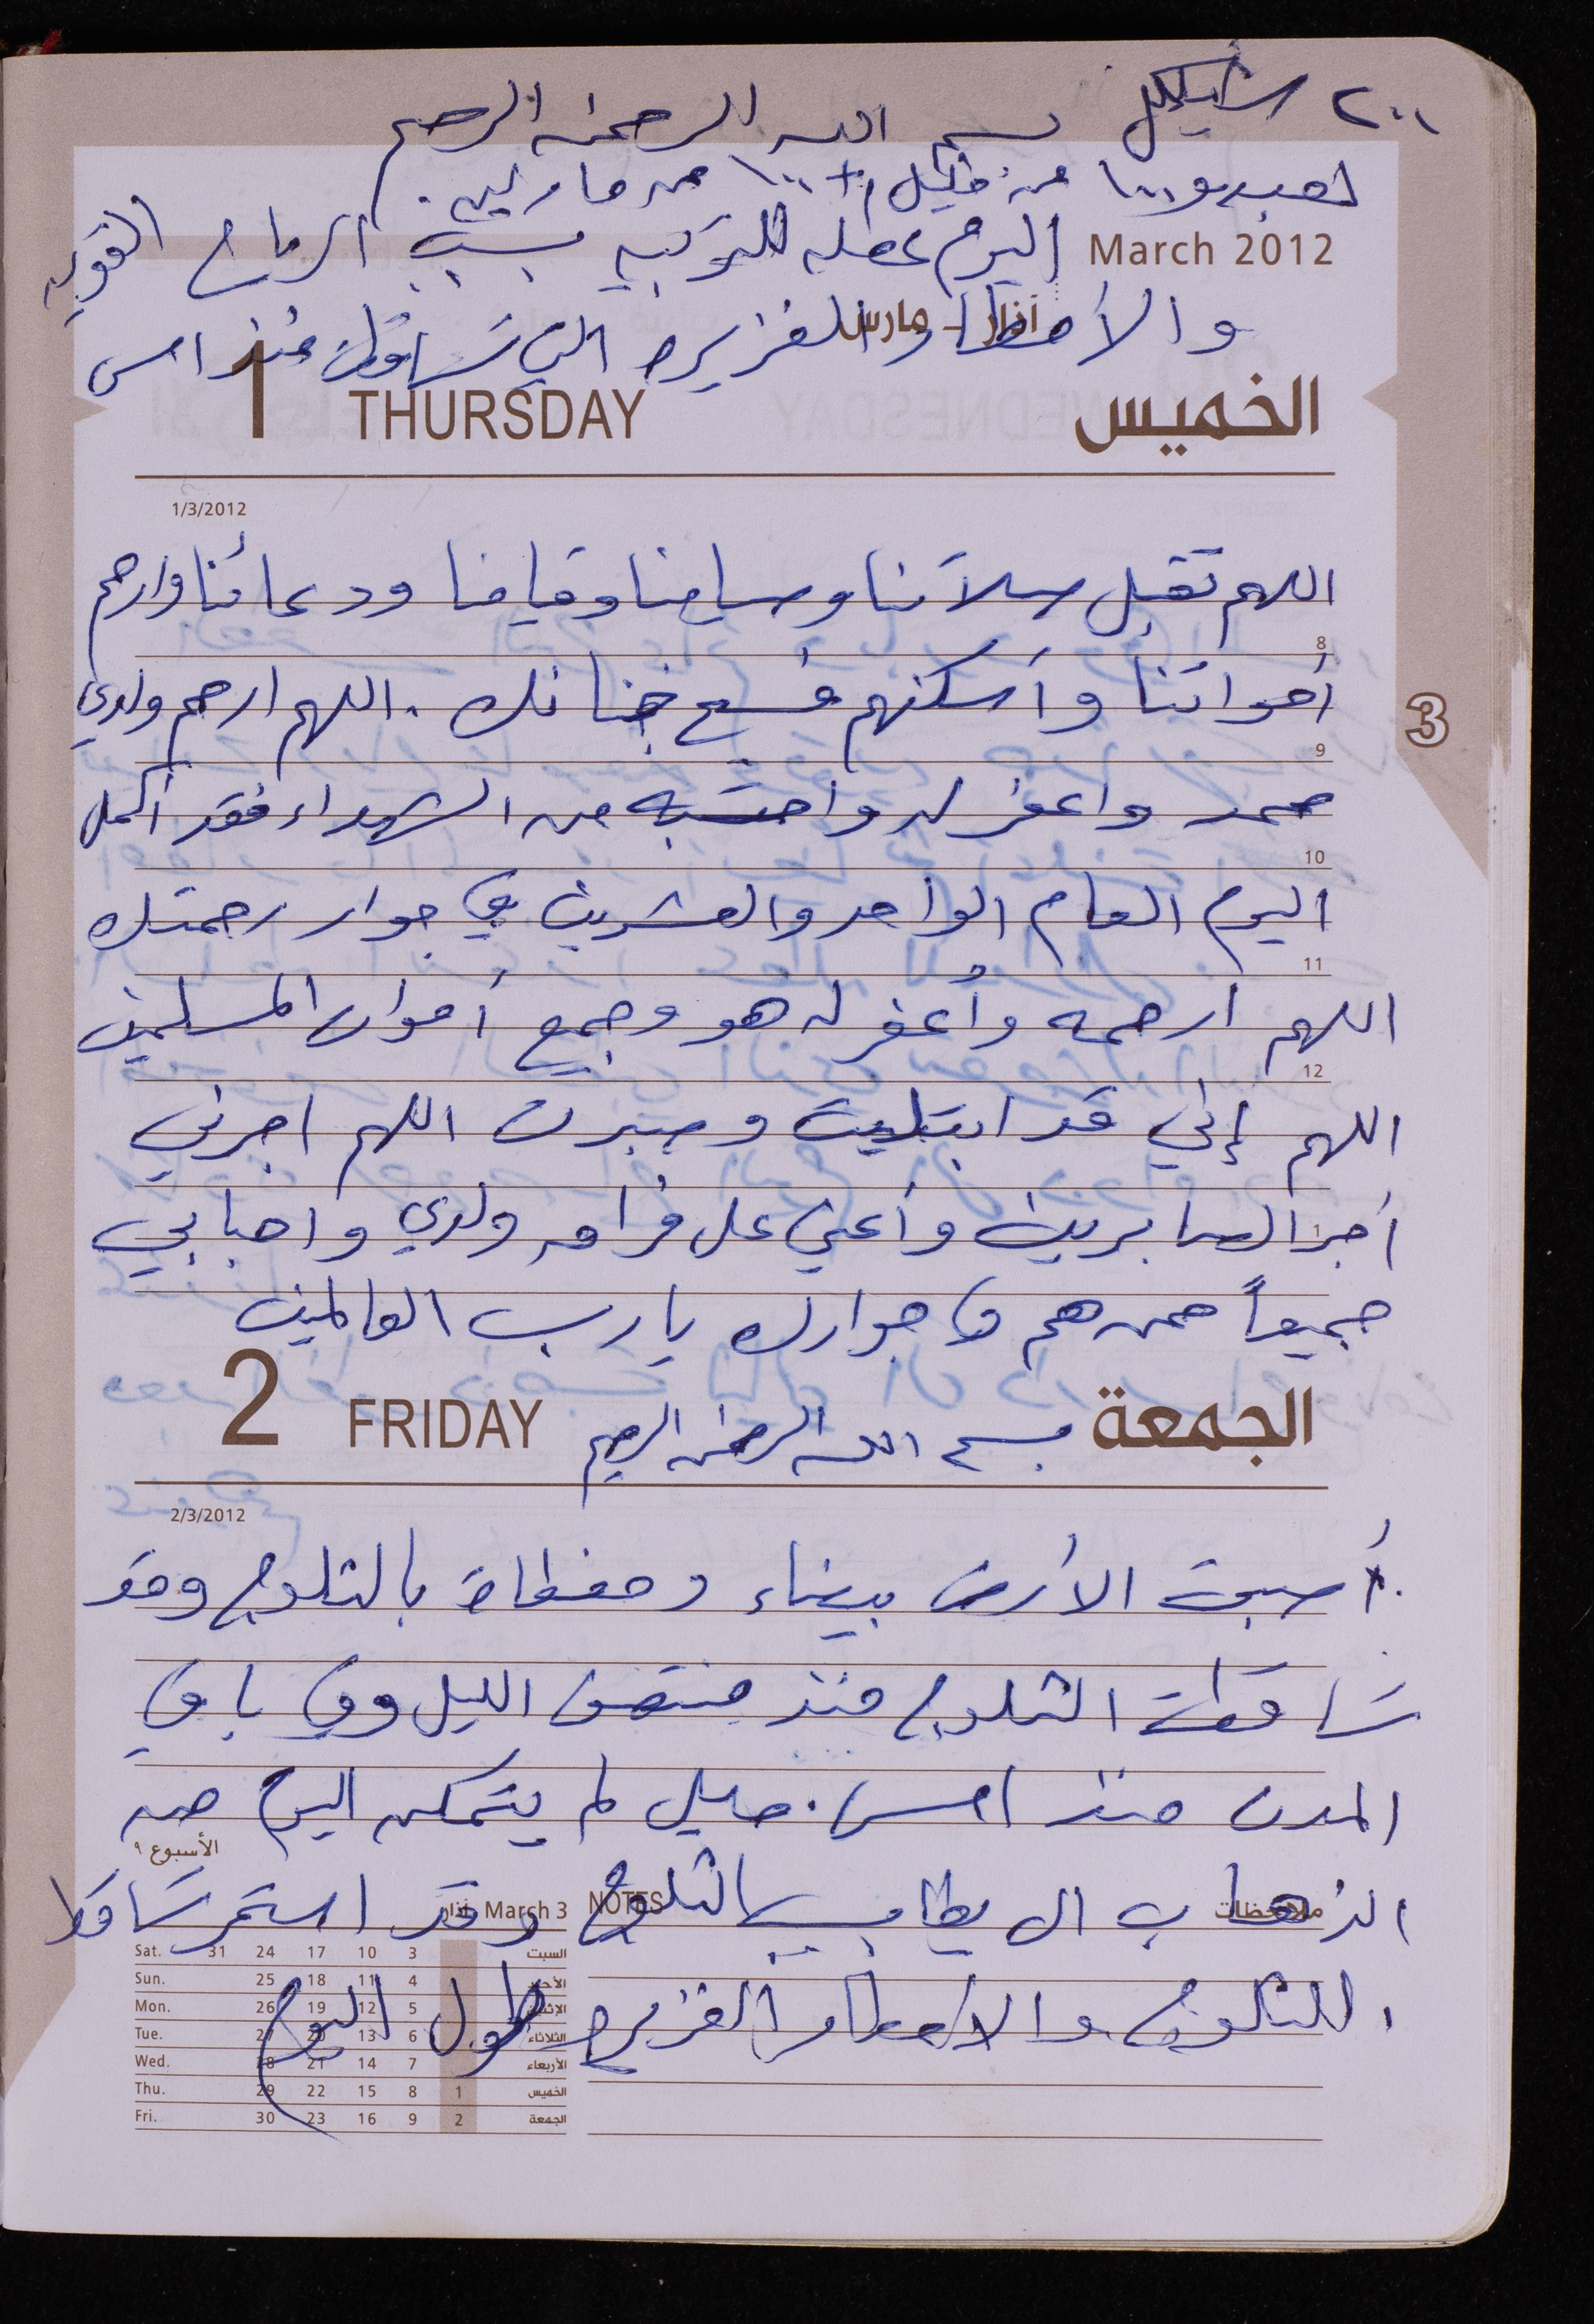 ٢٠٠ شيكل بسم الله الرحمن الرحيم
لعبدو ١٠٠ من خليل + ١٠٠ من مارلين.
March 2012 اليوم عطله للتربيه بسبب الرياح القويه
آذار - مارس
والأمطار الغزيره التي تساقطت منذ امس
1 THURSDAY الخميس
1/3/2012
اللهم تقبل سلاتنا وسيامنا وقيامنا ودعائنا وارحم
8
أمواتنا وأسكنهم فسيح جنانك . اللهم ارحم ولدي
9
محمد واغفر له واحتسبه من الشهداء فقد أكمل
10
اليوم العام الواحد والعشرين في جوار رحمتك
11
اللهم ارحمه وأغفر له هو وجميع أموات المسلمين
12
اللهم إني قد ابتليت وصبرت اللهم اجرني
أجر الصابرين وأعني على فراق ولدي واحبابي
1
جميعاً ممن هم في جوارك يا رب العالمين
2 FRIDAY بسم الله الرحمن الرحيم الجمعة
2/3/2012
أصبحت الأرض بيضاء ومغطاة بالثلوج وقد
تساقطت الثلوج منذ منتصف الليل وفي باقي
المدن منذ امس. خليل لم يتمكن اليوم من
الأسبوع ٩
الذهاب الى بسبب الثلوج وقد استمر تساقط
ملاحظات NOTES March 3 آذار
الثلوج والأمطار الغزيره طول اليوم
Sat. 31 24 17 10 3 السبت
Sun. 25 18 11 4 الأحد
Mon. 26 19 12 5 الإثنين
Tue. 27 20 13 6 الثلاثاء
Wed. 28 21 14 7 الأربعاء
Thu. 29 22 15 8 1 الخميس
Fri. 30 23 16 9 2 الجمعة
3